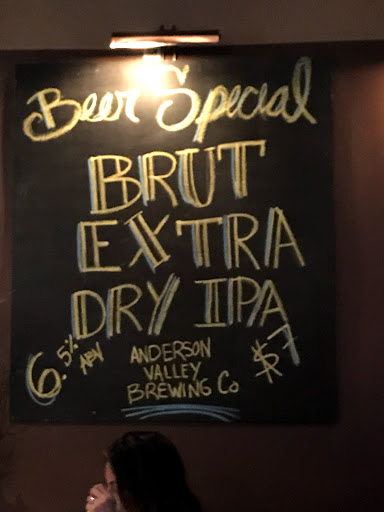 Beer Special
BRUT
EXTRA
DRY IPA
6.5% ABV
ANDERSON
VALLEY
BREWING Co
$7